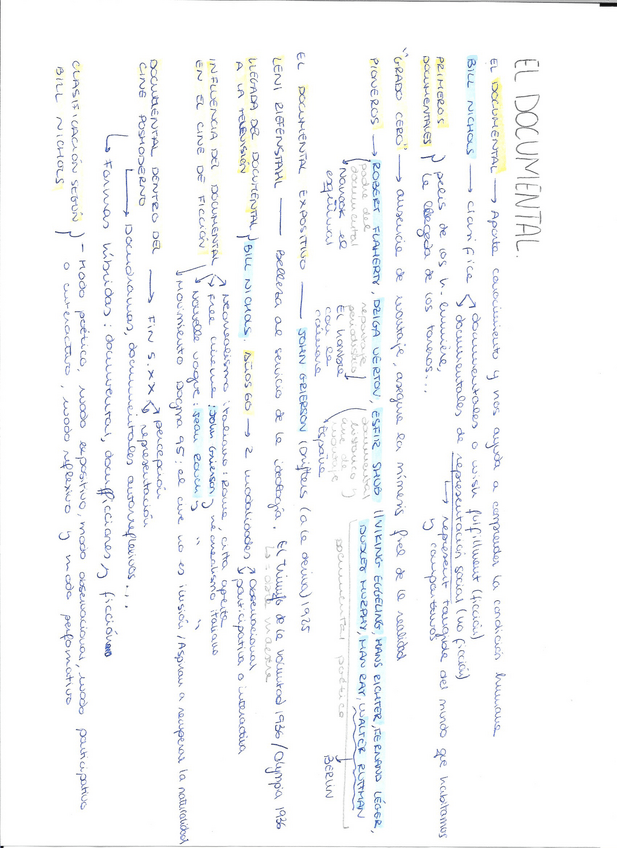 EL DOCUMENTAL.
EL DOCUMENTAL → Aporta conocimiento y nos ayuda a comprender la condición humana
BILL NICHOLS → clasifica documentales o wish fulfillment (ficción)
documentales de representación social (no ficción)
↳ represent tangible del mundo que habitamos y compartimos
PRIMEROS DOCUMENTALES } pelis de los h. lumière, la llegada de los toreros...
"GRADO CERO" → ausencia de montaje, asegura la mímesis fiel de la realidad
PIONEROS → ROBERT FLAHERTY, DZIGA VERTOV, ESFIR SHUB // VIKING EGGELING, HANS RICHTER, FERNAND LÉGER,
DUDLEY MURPHY, MAN RAY, WALTER RUTTMAN
padre del documental
Nanook el esquimal
reportaje periodístico
El hombre con la cámara
documental histórico y cine de montaje
España
documental poético
BERLIN
EL DOCUMENTAL EXPOSITIVO → JOHN GRIERSON (Drifters (a la deriva) 1925
LENI RIEFENSTAHL → Belleza al servicio de la ideología. El Triunfo de la voluntad 1936 / Olympia 1936
la obra maestra
LLEGADA DEL DOCUMENTAL A LA TELEVISIÓN } BILL NICHOLS: AÑOS 60 → 2 modalidades observacional
participativa o interactiva
INFLUENCIA DEL DOCUMENTAL EN EL CINE DE FICCIÓN
Neorrealismo italiano: Roma cità aperta
Free cinema: John Grierson y neorrealismo italiano
Nouvelle vogue: Jean Rouch y " "
Movimiento Dogma 95: el cine no es ilusión / Aspiran a recuperar la naturalidad
DOCUMENTAL DENTRO DEL CINE POSMODERNO → FIN S.XX percepción
representación
↳ Docudramas, documentales autorreflexivos...
↳ Formas híbridas: documental, docuficciones y ficción
CLASIFICACIÓN SEGÚN BILL NICHOLS } - Modo poético, modo expositivo, modo observacional, modo participativo
o interactivo, modo reflexivo y modo performativo